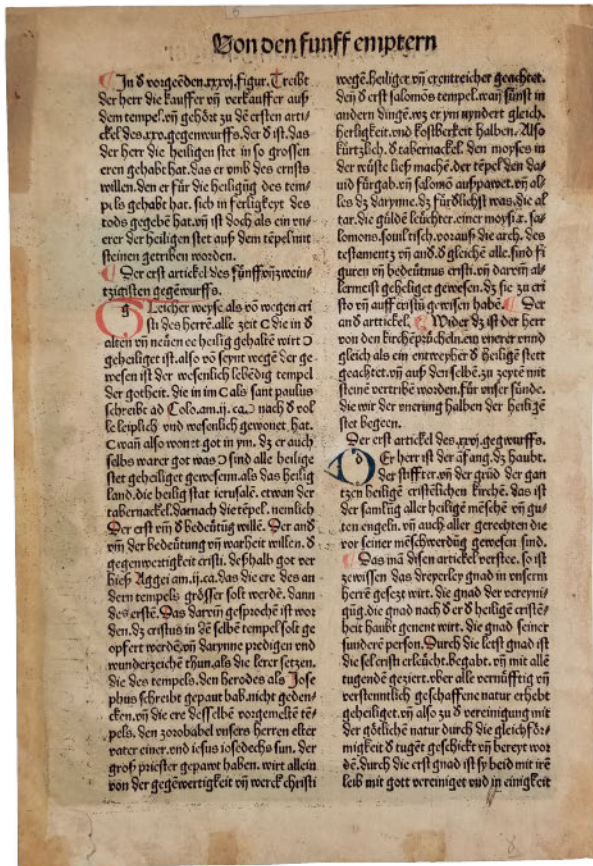 Von den funff emptern
¶ In d̕ vorgeẽden.xxxvj.figur. Treibt
der herr die kauffer vñ verkauffer auß
dem tempel.vñ gehõt zu dẽ ersten arti/
ckel des.xxv.gegenwurffs.der d̕ ist.das
der herr die heiligen stet in so grossen
eren gehabt hat.das er vmb des ernsts
willen.den er für die heiligũg des tem/
pels gehabt hat. sich in ferligkeyt des
tods gegebẽ hat.vñ ist doch als ein vn/
erer der heiligen stet auß dem tẽpel mit
steinen getriben worden.
¶ Der erst artickel des fünff vñ zwein/
tzigisten gegẽwurffs.
g Leicher weyse.als võ wegen cri
sti des herrẽ.alle zeit C die in d̕
alten vñ neüen ee heilig gehaltẽ wirt Ɔ
geheiliget ist.also võ seynt wegẽ der ge
wesen ist der wesenlich lebẽdig tempel
der gotheit. die in im C als sant paulus
schreibt ad Colo.am.ij.ca.Ɔ nach d̕ vol
le leiplich vnd wesenlich gewonet hat.
C wañ also wonet got in ym. dz er auch
selbs warer got was Ɔ sind alle heilige
stet geheiliget gewesenn.als das heilig
land.die heilig stat ierusalẽ. etwan der
tabernackel.darnach die tẽpel. nemlich
Der erst vm̃ d̕ bedeütũg willẽ. Der and
vm̃ der bedeütung vñ warheit willen. d̕
gegenwertigkeit cristi. deßhalb got ver
hieß Aggei am.ij.ca.das die ere des an
dern tempels grösser solt werdẽ. dann
des erstẽ. Das darvm̃ gesprochẽ ist wor
den.dz cristus in dẽ selbẽ tempel solt ge
opfert werdẽ.vñ darynne predigen vnd
wunderzeichẽ thun.als die lerer setzen.
die des tempels. den herodes als Jose
phus schreibt gepaut hab.nicht geden/
cken.vñ die ere desselbẽ vorgemeltẽ tẽ/
pels. den zorobabel vnsers herren elter
vater einer.vnd iesus iosedechs sun. der
groß priester gepawt haben. wirt allein
von der gegẽwertigkeit vñ werck christi
wegẽ.heiliger vñ erentreicher geachtet.
deñ d̕ erst salomõs tempel.wañ sunst in
andern dingẽ.wz er ym nyndert gleich.
herligkeit.vnd kostberkeit halben. Also
kürtzlich. d̕ tabernackel. den moyses in
der wüste ließ machẽ.der tẽpel den da/
uid fürgab.vñ salomõ außpawet.vñ al/
les dz darynne.dz fürdlichst was.die al
tar.die güldẽ leüchter.einer moysi.x. sa/
lomons.souil tisch.vorauß die arch. des
testamentz vñ and.d̕ gleichẽ alle.sind fi
guren vñ bedeütnus cristi.vñ darvm̃ al/
lermeist geheliget gewesen.dz sie zu cri
sto vñ auff cristũ gewisen habẽ. ¶ Der
and arttickel. ¶ Wider dz ist der herr
von den kirchẽprücheln.ein vnerer vnnd
gleich als ein entweyher d̕ heiligẽ stett
geachtet.vñ auß den selbẽ.zu zeytẽ mit
steinẽ vertribẽ worden.für vnser sünde.
die wir der vnerung halben der heiligẽ
stet begeen.
Der erst artickel des.xxvj.gegwurffs.
d Er herr ist der ãfang.dz haubt.
der stiffter.vñ der grũd der gan
tzen heiligẽ cristẽlichen kirchẽ. Das ist
der samlũg aller heiligẽ mẽschẽ vñ gu/
ten engeln. vñ auch aller gerechten die
vor seiner mẽschwerdũg gewesen sind.
¶ Das mã disen artickel verstee. so ist
zewissen das dreyerley gnad in vnserm
herrẽ gesezt wirt. die gnad der vereyni/
gũg.die gnad nach d̕ er d̕ heiligẽ cristẽ/
heit haubt genent wirt. die gnad seiner
sunderẽ person. Durch die letst gnad ist
die sel cristi erleücht.begabt. vñ mit allẽ
tugendẽ geziert.vber alle vernüfftig vñ
verstenntlich geschaffene natur erhebt
geheiliget.vñ also zu d̕ vereinigung mit
der götlichẽ natur durch die gleichför/
migkeit d̕ tugẽt geschickt vñ bereyt wor
dẽ.durch die erst gnad ist sy beid mit irẽ
leib mit gott vereiniget vnd in einigkeit